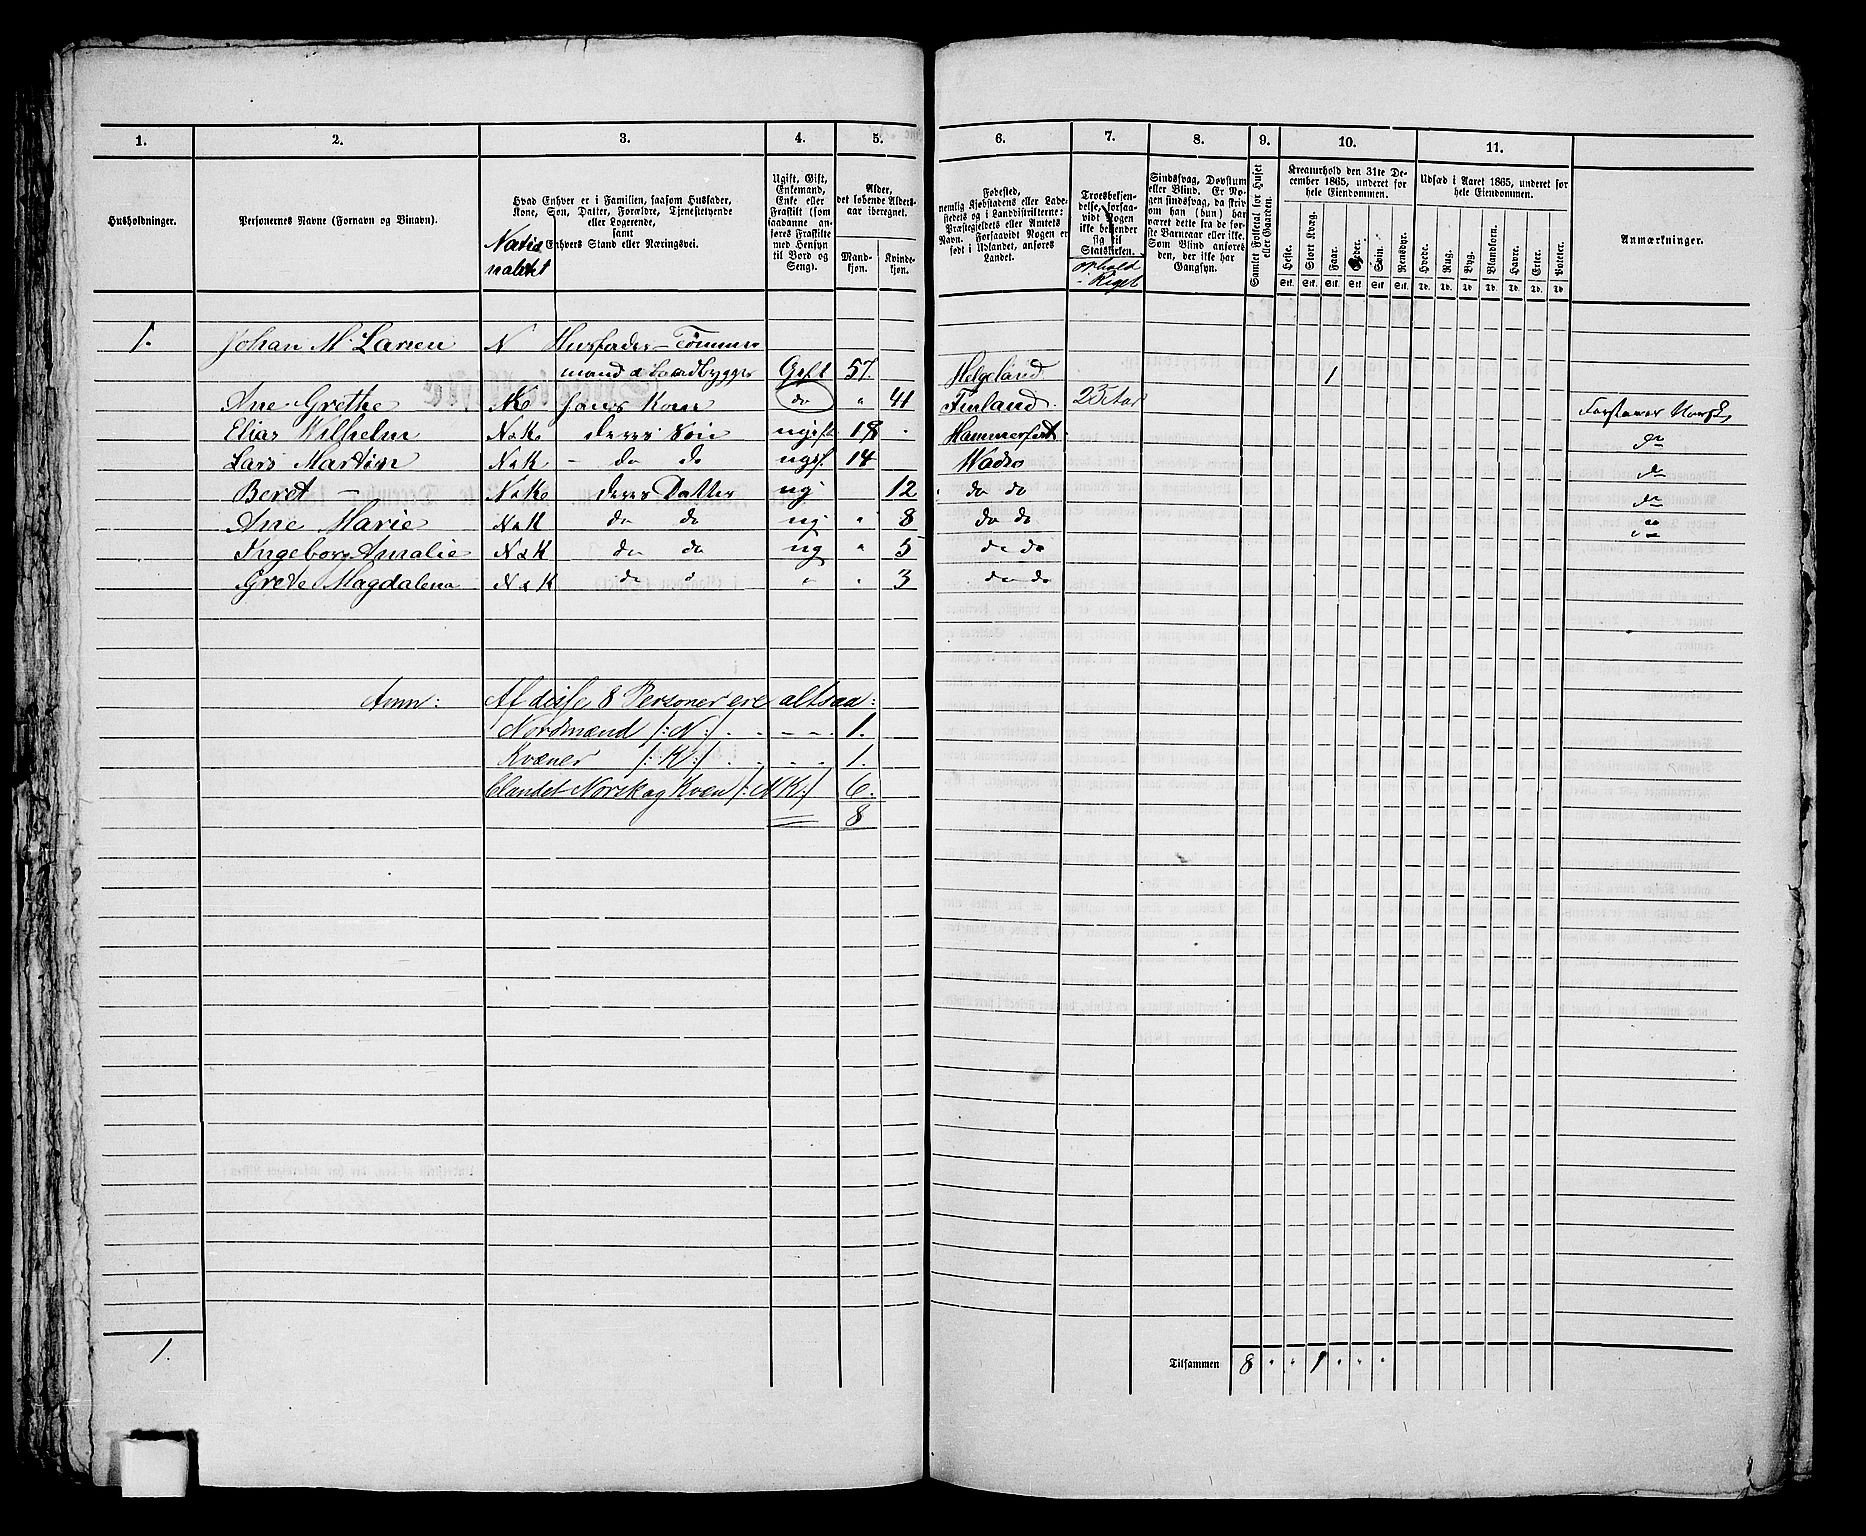 1. 2. 3. 4. 5. 6. 7. 8. 9. 10. 11.
Husholdninger.
Personernes Navne (Fornavn og Binavn).
Natio
nalitet
Hvad Enhver er i Familien, saasom Husfader,
Kone, Søn, Datter, Forældre, Tjenestetyende
eller Logerende,
samt
Enhvers Stand eller Næringsvei.
Ugift, Gift,
Enkemand,
Enke eller
Fraskilt (som
saadanne an-
føres Fraskilte
med Hensyn
til Bord og
Seng).
Alder,
det løbende Alders-
aar iberegnet.
Mand-
kjøn.
Kvinde-
kjøn.
Fødested,
nemlig Kjøbstadens eller Lade-
stedets og i Landdistrikterne:
Præstegjeldets eller Amtets
Navn. Forsaavidt Nogen er
født i Udlandet, anføres
Landet.
Troesbekjen-
delse, forsaa-
vidt Nogen
ikke bekjender
sig til
Statskirken.
ophold
i Riget
Sindssvag, Døvstum
eller Blind. Er No-
gen sindssvag, da skriv
om han (hun) har
været dette fra de før-
ste Barneaar eller ikke.
Som Blind anføres
den, der ikke har
Gangsyn.
Samlet Folketal for Huset
eller Gaarden.
Kreaturhold den 31te De-
cember 1865, underet for
hele Eiendommen.
Heste. Stort Kvæg. Faar. Gjeder. Svin. Rensdyr.
Stk. Stk. Stk. Stk. Stk. Stk.
Udsæd i Aaret 1865, underet for
hele Eiendommen.
Hvede. Rug. Byg. Blandkorn. Havre. Erter. Poteter.
Td. Td. Td. Td. Td. Td. Td.
Anmærkninger.
1. Johan M. Larsen N Husfader – Tømmer
mand & baadbygger Gift 57. Helgeland 1
Ane Grethe K hans Kone do " 41 Finland. 23 Aar Forstaaer Norsk
Elias Wilhelm N&K. deres Søn ugift 18 . Hammerfest do
Lars Martin N&K – do do ugf. 14 Wadsø do
Beret – N&K deres Datter ug " 12 do do do
Ane Marie N&K do do ug " 8 do do do
Ingeborg Amalie N&K do do ug " 5 do do
Grete Magdalena N&K do do " " 3 do do
Anm: Af disse 8 Personer ere altsaa:
Nordmænd /:N:/ . . – – . 1.
Kvæner /:K:/ . . – – . 1.
Blandet Norsk og Kven /:NK:/ 6.
8
1.
Tilsammen 8 " " 1 " " "